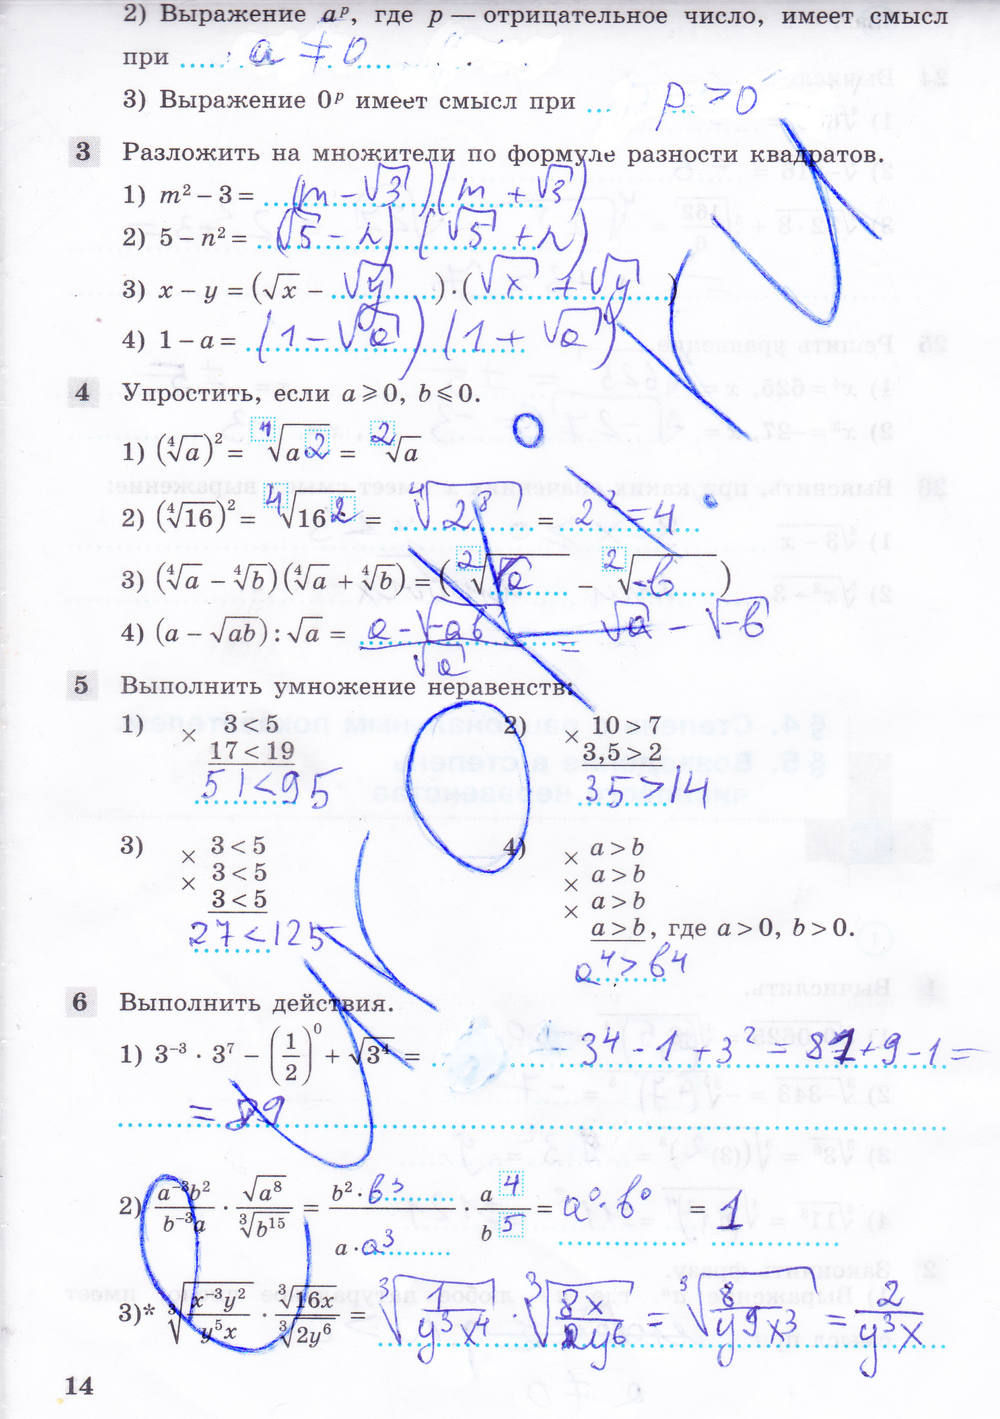 2) Выражение aᵖ, где p — отрицательное число, имеет смысл
при a ≠ 0
3) Выражение 0ᵖ имеет смысл при p > 0
3 Разложить на множители по формуле разности квадратов.
1) m² − 3 = (m − √3)(m + √3)
2) 5 − n² = (√5 − n)(√5 + n)
3) x − y = (√x − √y) · (√x + √y)
4) 1 − a = (1 − √a)(1 + √a)
4 Упростить, если a ⩾ 0, b ⩽ 0.
1) (∜a)² = ∜a² = ²√a
2) (∜16)² = ∜16² = ∜2⁸ = 2² = 4
3) (∜a − ∜b)(∜a + ∜b) = (²√a − ²√−b)
4) (a − √ab) : √a = (a − √−ab)/√a = √a − √−b
5 Выполнить умножение неравенств:
1) × 3 < 5
17 < 19
51 < 95
2) × 10 > 7
3,5 > 2
35 > 14
3) × 3 < 5
× 3 < 5
3 < 5
27 < 125
4) × a > b
× a > b
× a > b
a > b, где a > 0, b > 0.
a⁴ > b⁴
6 Выполнить действия.
1) 3⁻³ · 3⁷ − (1/2)⁰ + √3⁴ = 3⁴ − 1 + 3² = 81 + 9 − 1 =
= 89
2) a⁻³b²/b⁻³a · √a⁸/∛b¹⁵ = b² · b³/a · a³ · a⁴/b⁵ = a⁰ · b⁰ = 1
3)* ∛(x⁻³y²/y⁵x) · ∛16x/∛2y⁶ = ∛(1/y³x⁴) · ∛(8x/2y⁶) = ∛(8/y⁹x³) = 2/y³x
14